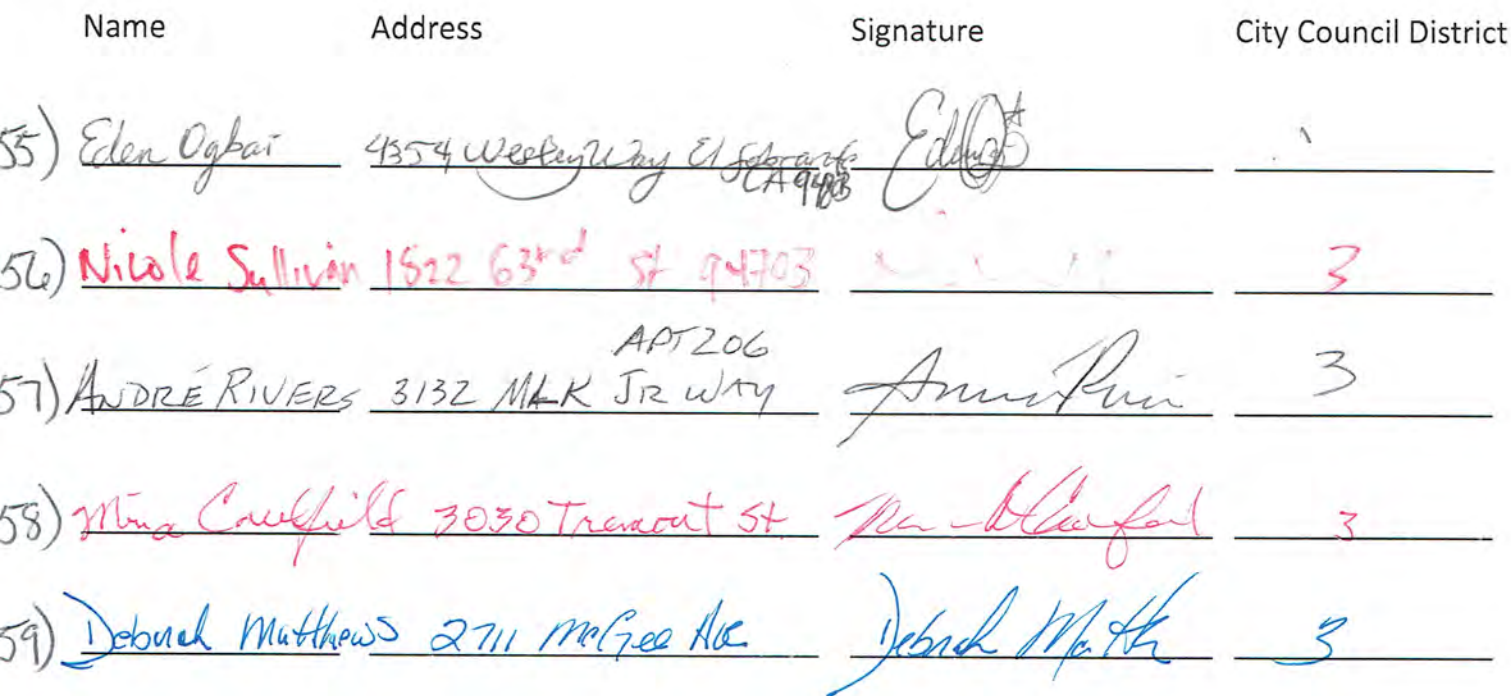 Name Address Signature City Council District
55) Eden Ogbai 4354 Wesley Way El Sobrante
CA 94803
56) Nicole Sullivan 1822 63rd St 94703 3
APT 206
57) ANDRÉ RIVERS 3132 MLK JR WAY 3
58) Mina Caulfield 3030 Tremont St 3
59) Deborah Matthews 2711 McGee Ave Deborah Matth 3